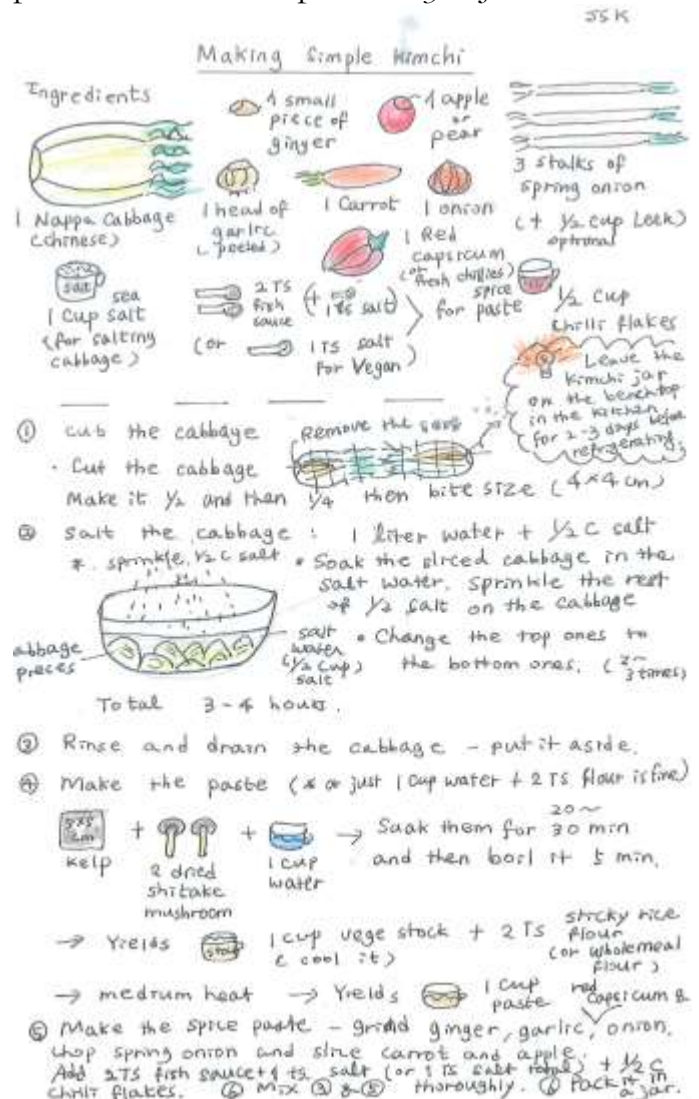 JSK
Making Simple Kimchi
Ingredients
1 Nappa Cabbage
(chinese)
1 small
piece of
ginger
1 apple
or
pear
3 stalks of
spring onion
(+ 1/2 cup Leek)
optional
1 head of
garlic
(peeled)
1 Carrot
1 onion
1 Red
capsicum
(or
fresh chillies)
salt
sea
1 Cup salt
(for salting
cabbage)
2 TS
fish
sauce
(or
1 TS salt
for Vegan)
spice
for paste
1/2 cup
chilli flakes
Leave the
kimchi jar
on the benchtop
in the kitchen
for 2-3 days before
refrigerating.
① cut the cabbage
Remove the
• Cut the cabbage
Make it 1/2 and then 1/4 then bite size (4×4 cm)
② Salt the cabbage : 1 liter water + 1/2 C salt
* sprinkle 1/2 C salt
• Soak the sliced cabbage in the
salt water. Sprinkle the rest
of 1/2 salt on the cabbage
abbage
pieces
salt
water
(1/2 cup)
salt
• Change the top ones to
the bottom ones. (2~
3 times)
Total 3-4 hours.
③ Rinse and drain the cabbage - put it aside.
④ Make the paste (* or just 1 cup water + 2 TS flour is fine)
5×5
cm
kelp
+
2 dried
shitake
mushroom
+
1 cup
water
→ Soak them for 20~
30 min
and then boil it 5 min.
→ Yields
stock
1 cup vege stock + 2 TS
(cool it)
sticky rice
flour
(or wholemeal
flour)
→ medium heat → Yields
1 cup
paste
red
Capsicum &
⑤ Make the spice paste - grind ginger, garlic, onion,
chop spring onion and slice carrot and apple.
Add 2TS fish sauce + 1 ts salt (or 1 TS salt total) + 1/2 C
chilli flakes. ⑥ Mix ③ & ⑤ thoroughly. ⑥ Pack it in
a jar.